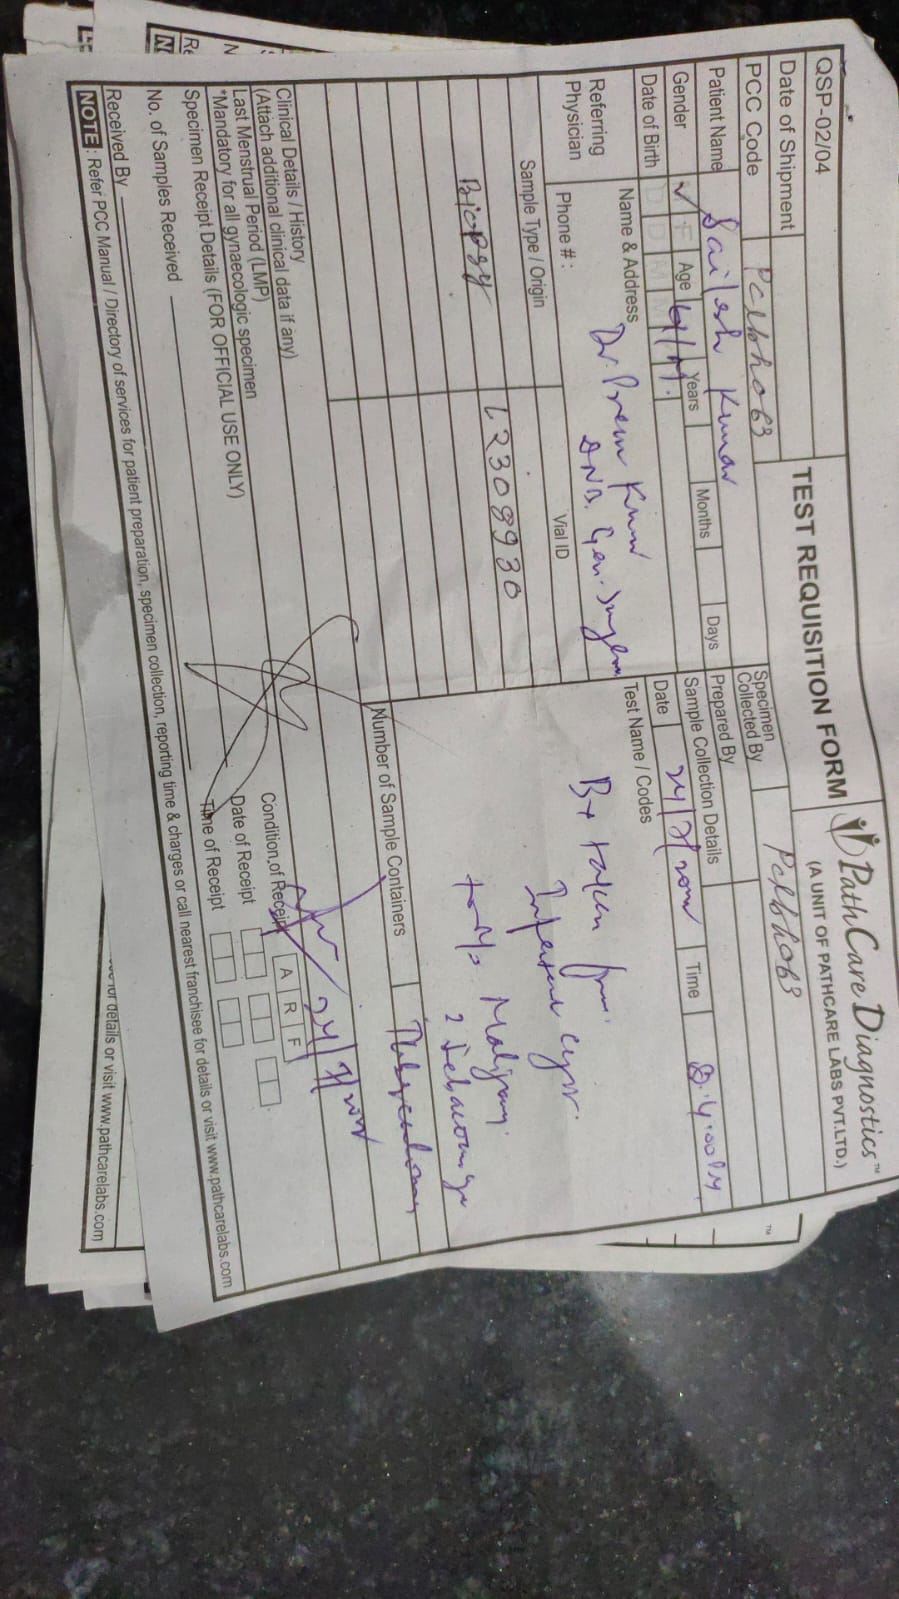 QSP-02/04
TEST REQUISITION FORM
PathCare Diagnostics™
(A UNIT OF PATHCARE LABS PVT.LTD.)
Date of Shipment
PCC Code Pclbh063
Specimen Collected By Pclbh063
Patient Name Sailesh Kumar
Prepared By
Gender ✓ F Age Years Months Days
Sample Collection Details
Date of Birth D D M
Date 24/7/ Time 4:00PM
Referring Physician
Name & Address Dr. Prem Kumar
DNB. Gen.
Phone # :
Test Name / Codes
Bx taken from
cyst.
to r/o Malignancy
2 Sebaceous
Tuberculosis
Sample Type / Origin Vial ID
L2308930
Biopsy
Number of Sample Containers
24/7/
Clinical Details / History
(Attach additional clinical data if any)
Last Menstrual Period (LMP)
*Mandatory for all gynaecologic specimen
Specimen Receipt Details (FOR OFFICIAL USE ONLY)
Condition of Receipt A R F
No. of Samples Received
Date of Receipt
Received By
Time of Receipt
NOTE : Refer PCC Manual / Directory of services for patient preparation, specimen collection, reporting time & charges or call nearest franchisee for details or visit www.pathcarelabs.com
for details or visit www.pathcarelabs.com